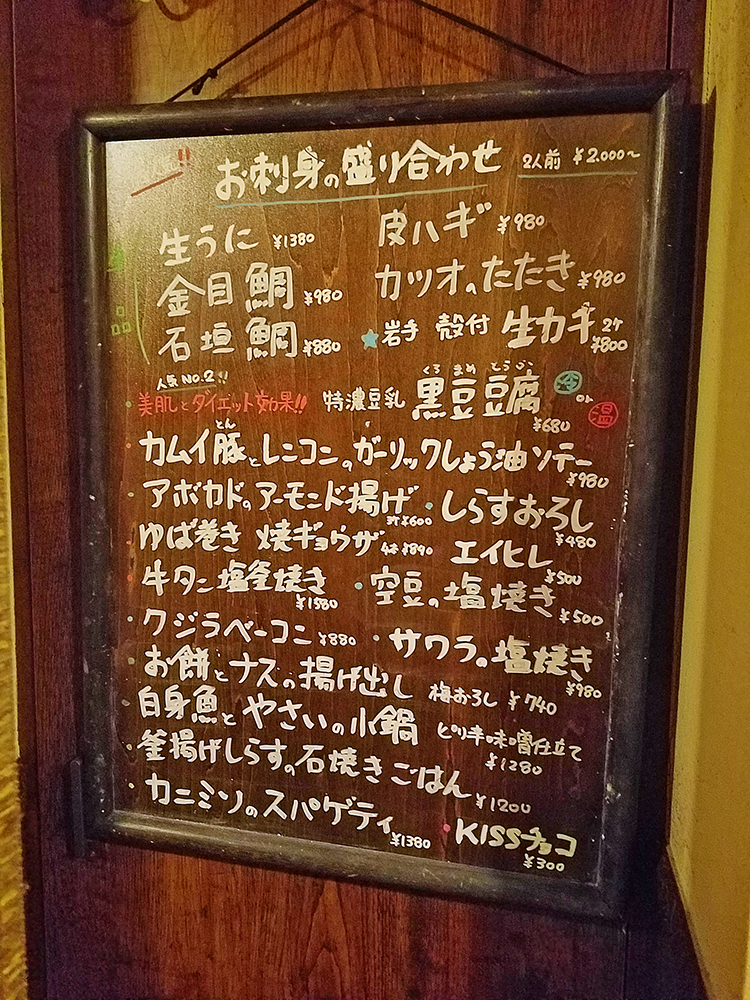 お刺身の盛り合わせ 2人前 ¥2.000〜
生うに ¥1380 皮ハギ ¥980
金目鯛 ¥980 カツオのたたき ¥980
石垣鯛 ¥880 ★岩手 殻付 生カキ 2ケ ¥800
人気NO.2!!
くろ まめ とうふ
・美肌とダイエット効果!! 特濃豆乳 黒豆豆腐 冷 or 温 ¥680
とん
・カムイ豚とレンコンのガーリックしょう油ソテー ¥980
・アボカドのアーモンド揚げ ¥600 ・しらすおろし ¥480
・ゆば巻き 焼ギョウザ 4ヶ ¥890 ・エイヒレ ¥500
・牛タン塩釜焼き ¥1580 ・空豆の塩焼き ¥500
・クジラベーコン ¥880 ・サワラの塩焼き ¥980
・お餅とナスの揚げ出し 梅おろし ¥740
・白身魚とやさいの小鍋 ピリ辛味噌仕立て ¥1280
・釜揚げしらすの石焼きごはん ¥1200
・カニミソのスパゲティ ¥1380 ・KISSチョコ ¥300